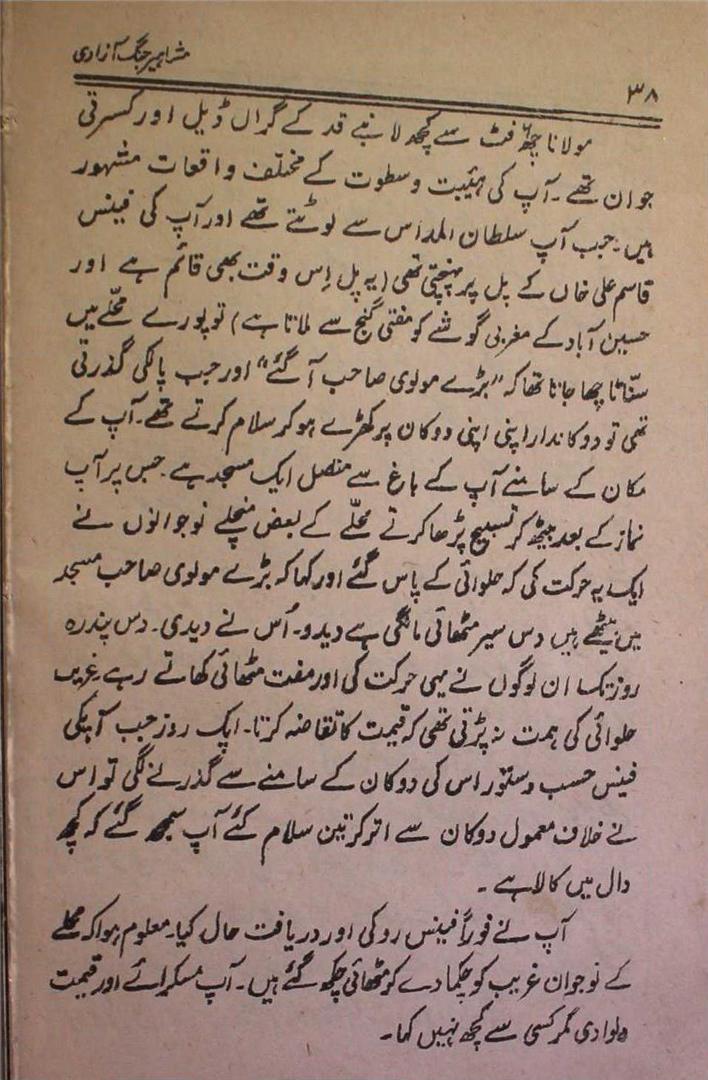 مشاہیر جنگ آزادی
۳۸
مولانا چھ فٹ سے کچھ لانبے قد کے گراں ڈیل اور کسرتی
جوان تھے۔ آپ کی ہیبت و سطوت کے مختلف واقعات مشہور
ہیں۔ جب آپ سلطان المدارس سے لوٹتے تھے اور آپ کی فینس
قاسم علی خاں کے پل پر پہنچتی تھی (یہ پل اِس وقت بھی قائم ہے اور
حسین آباد کے مغربی گوشے کو مفتی گنج سے ملاتا ہے) تو پورے محلّے میں
سنّاٹا چھا جاتا تھا کہ "بڑے مولوی صاحب آ گئے" اور جب پالکی گذرتی
تھی تو دوکاندار اپنی اپنی دوکان پر کھڑے ہو کر سلام کرتے تھے۔ آپ کے
مکان کے سامنے آپ کے باغ سے متصل ایک مسجد ہے۔ جس پر آپ
نماز کے بعد بیٹھ کر تسبیح پڑھا کرتے محلّے کے بعض منچلے نوجوانوں نے
ایک یہ حرکت کی کہ حلوائی کے پاس گئے اور کہا کہ بڑے مولوی صاحب مسجد
میں بیٹھے ہیں دس سیر مٹھائی مانگی ہے دیدو۔ اُس نے دیدی۔ دس پندرہ
روز تک ان لوگوں نے یہی حرکت کی اور مفت مٹھائی کھاتے رہے غریب
حلوائی کی ہمت نہ پڑتی تھی کہ قیمت کا تقاضہ کرتا۔ ایک روز جب آپکی
فینس حسب دستور اس کی دوکان کے سامنے سے گذرنے لگی تو اس
نے خلاف معمول دوکان سے اتر کر تین سلام کئے آپ سمجھ گئے کہ کچھ
دال میں کالا ہے۔
آپ نے فوراً فینس روکی اور دریافت حال کیا۔ معلوم ہوا کہ محلے
کے نوجوان غریب کو چکما دے کر مٹھائی چکھ گئے ہیں۔ آپ مسکرائے اور قیمت
دلوادی مگر کسی سے کچھ نہیں کہا۔